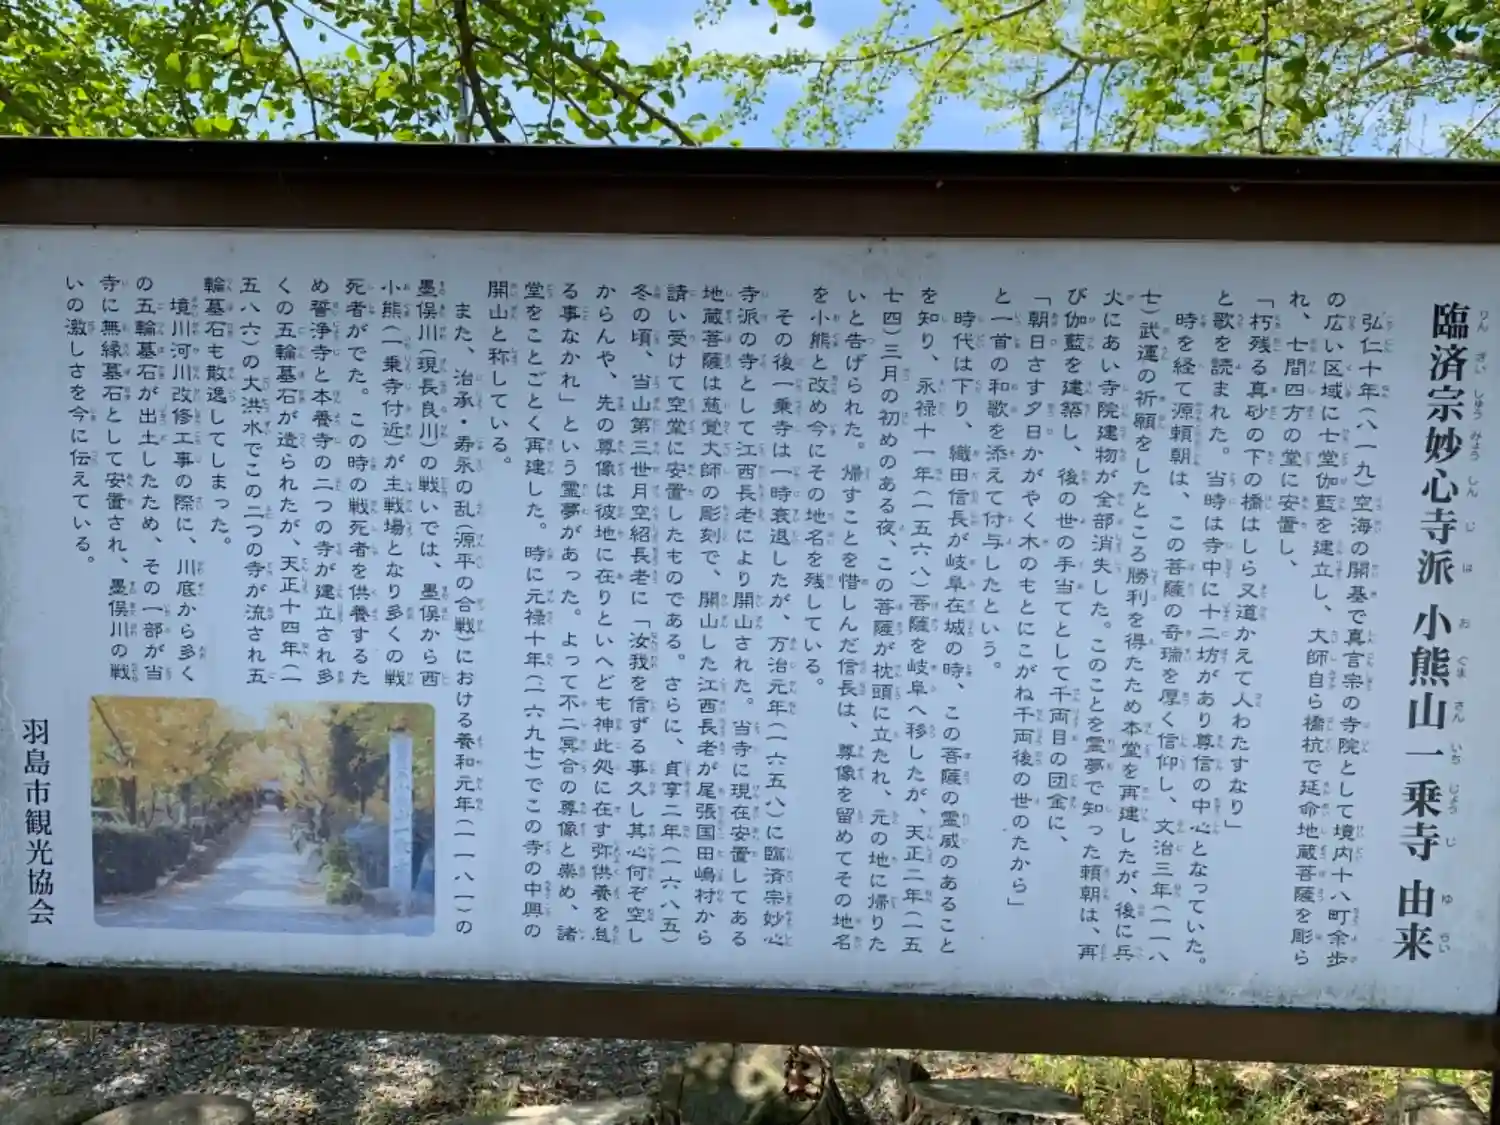 臨済宗妙心寺派 小熊山一乗寺 由来
弘仁十年(八一九)空海の開基で真言宗の寺院として境内十八町余歩
の広い区域に七堂伽藍を建立し、大師自ら橋杭で延命地蔵菩薩を彫ら
れ、七間四方の堂に安置し、
「朽残る真砂の下の橋はしら又道かえて人わたすなり」
と歌を読まれた。当時は寺中に十二坊があり尊信の中心となっていた。
時を経て源頼朝は、この菩薩の奇瑞を厚く信仰し、文治三年(一一八
七)武運の祈願をしたところ勝利を得たため本堂を再建したが、後に兵
火にあい寺院建物が全部消失した。このことを霊夢で知った頼朝は、再
び伽藍を建築し、後の世の手当てとして千両目の団金に、
「朝日さす夕日かがやく木のもとにこがね千両後の世のたから」
と一首の和歌を添えて付与したという。
時代は下り、織田信長が岐阜在城の時、この菩薩の霊威のあること
を知り、永禄十一年(一五六八)菩薩を岐阜へ移したが、天正二年(一五
七四)三月の初めのある夜、この菩薩が枕頭に立たれ、元の地に帰りた
いと告げられた。帰すことを惜しんだ信長は、尊像を留めてその地名
を小熊と改め今にその地名を残している。
その後一乗寺は一時衰退したが、万治元年(一六五八)に臨済宗妙心
寺派の寺として江西長老により開山された。当寺に現在安置してある
地蔵菩薩は慈覚大師の彫刻で、開山した江西長老が尾張国田嶋村から
請い受けて空堂に安置したものである。さらに、貞享二年(一六八五)
冬の頃、当山第三世月空紹長老に「汝我を信ずる事久し其心何ぞ空し
からんや、先の尊像は彼地に在りといへども神此処に在す弥供養を怠
る事なかれ」という霊夢があった。よって不二冥合の尊像と崇め、諸
堂をことごとく再建した。時に元禄十年(一六九七)でこの寺の中興の
開山と称している。
また、治承・寿永の乱(源平の合戦)における養和元年(一一八一)の
墨俣川(現長良川)の戦いでは、墨俣から西
小熊(一乗寺付近)が主戦場となり多くの戦
死者がでた。この時の戦死者を供養するた
め誓浄寺と本養寺の二つの寺が建立され多
くの五輪墓石が造られたが、天正十四年(一
五八六)の大洪水でこの二つの寺が流され五
輪墓石も散逸してしまった。
境川河川改修工事の際に、川底から多く
の五輪墓石が出土したため、その一部が当
寺に無縁墓石として安置され、墨俣川の戦
いの激しさを今に伝えている。
羽島市観光協会